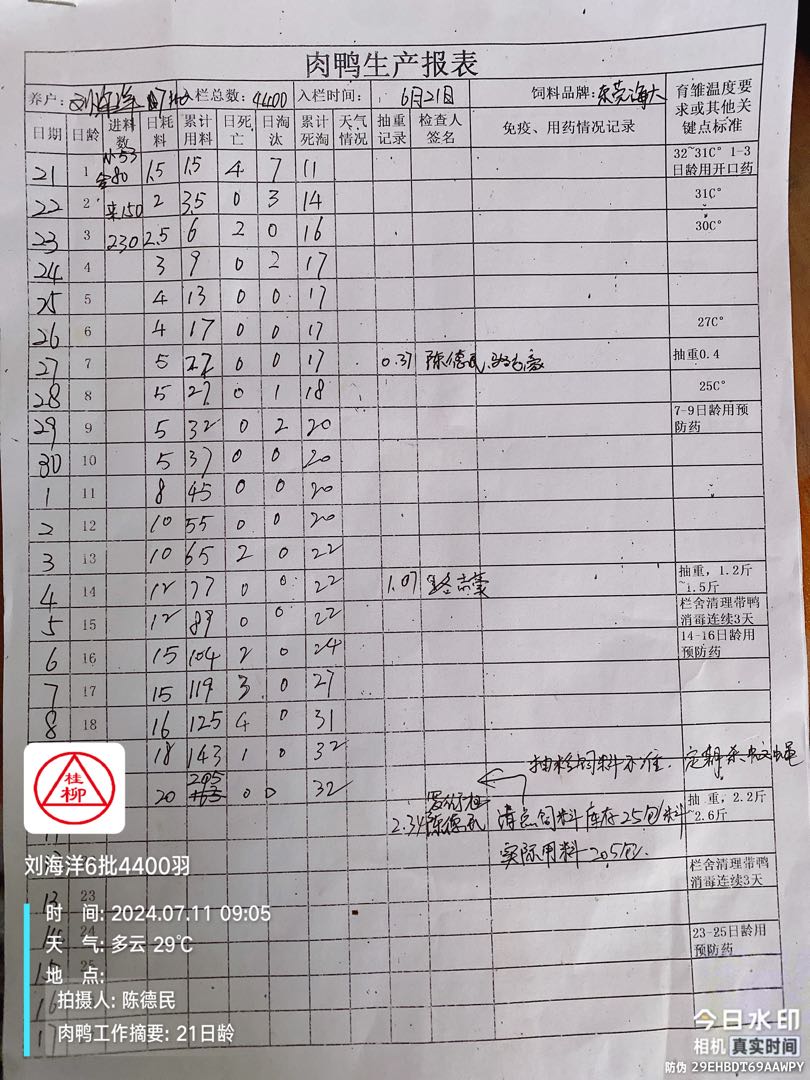 肉鸭生产报表
养户: 刘海洋 入栏总数: 4400 入栏时间: 6月21日 饲料品牌: 东莞海大 育雏温度要求或其他关键点标准
日期 日龄 进料数 日耗料 累计用料 日死亡 日淘汰 累计死淘 天气情况 抽重记录 检查人签名 免疫、用药情况记录
21 1 小53 全80 1.5 1.5 4 7 11 32~31C° 1-3日龄用开口药
22 2 来150 2 3.5 0 3 14 31C°
23 3 230 2.5 6 2 0 16 30C°
24 4 3 9 0 2 17
25 5 4 13 0 0 17
26 6 4 17 0 0 17 27C°
27 7 5 22 0 0 17 0.37 陈德民 抽重0.4
28 8 5 27 0 1 18 25C°
29 9 5 32 0 2 20 7-9日龄用预防药
30 10 5 37 0 0 20
1 11 8 45 0 0 20
2 12 10 55 0 0 20
3 13 10 65 2 0 22
4 14 12 77 0 0 22 1.07 抽重, 1.2斤~1.5斤
5 15 12 89 0 0 22 栏舍清理带鸭消毒连续3天
6 16 15 104 2 0 24 14-16日龄用预防药
7 17 15 119 3 0 27
8 18 16 125 4 0 31
18 143 1 0 32 抽检饲料标准. 定期杀虫灭蝇
20 205 163 0 0 32 2.34 陈德民 清点饲料库存25包料 抽重, 2.2斤~2.6斤
实际用料205包.
栏舍清理带鸭消毒连续3天
13 23
14 24 23-25日龄用预防药
15 25
16
17
桂柳
刘海洋6批4400羽
时 间: 2024.07.11 09:05
天 气: 多云 29℃
地 点:
拍摄人: 陈德民
肉鸭工作摘要: 21日龄
今日水印
相机 真实时间
防伪 29EHBDT69AAWPY